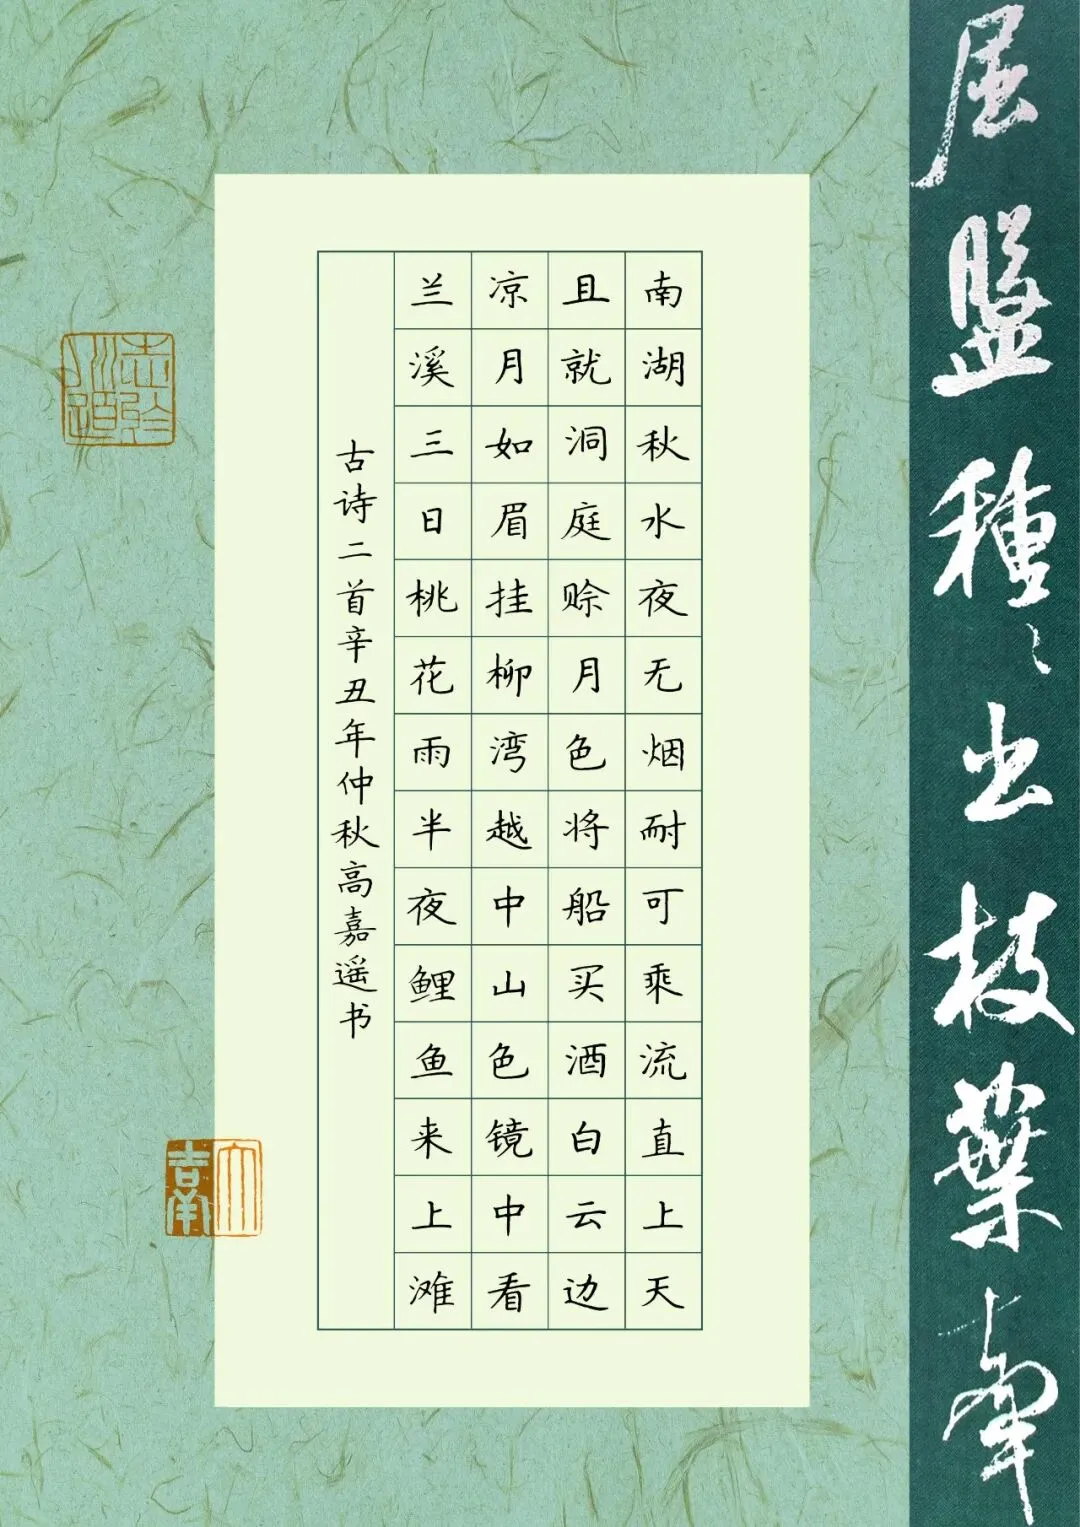 南湖秋水夜无烟耐可乘流直上天
且就洞庭赊月色将船买酒白云边
凉月如眉挂柳湾越中山色镜中看
兰溪三日桃花雨半夜鲤鱼来上滩
古诗二首辛丑年仲秋高嘉遥书
屈盘种〻出枝叶牵
大吉羊